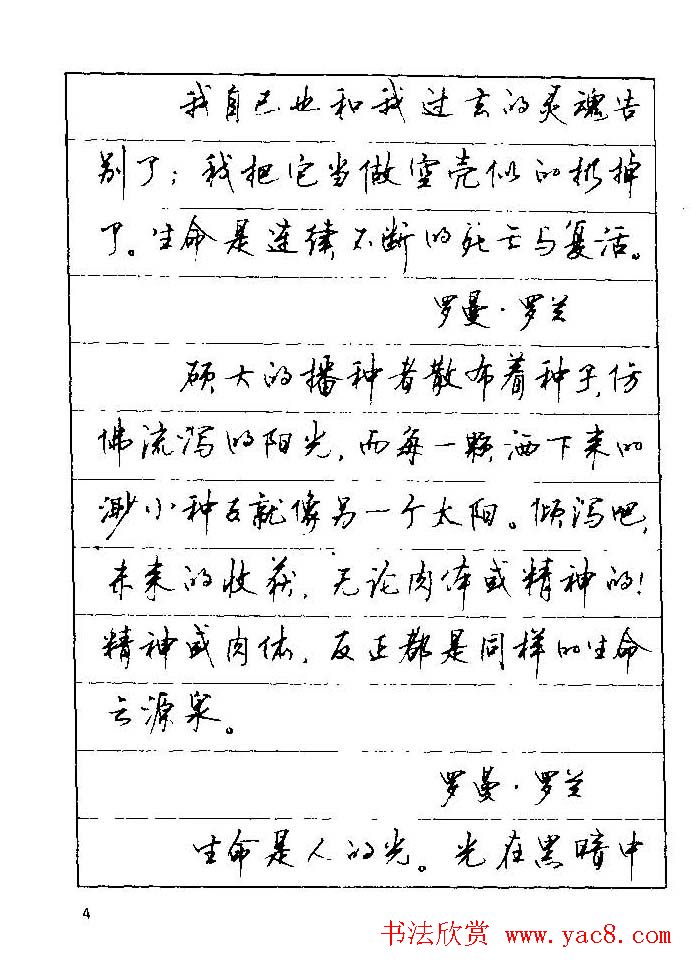 我自己也和我过去的灵魂告
别了；我把它当做空壳似的扔掉
了。生命是连续不断的死亡与复活。
罗曼·罗兰
硕大的播种者散布着种子，仿
佛流泻的阳光，而每一颗洒下来的
渺小种子就像另一个太阳。倾泻吧，
未来的收获，无论肉体或精神的！
精神或肉体，反正都是同样的生命
之源泉。
罗曼·罗兰
生命是人的光。光在黑暗中
4
书法欣赏 www.yac8.com